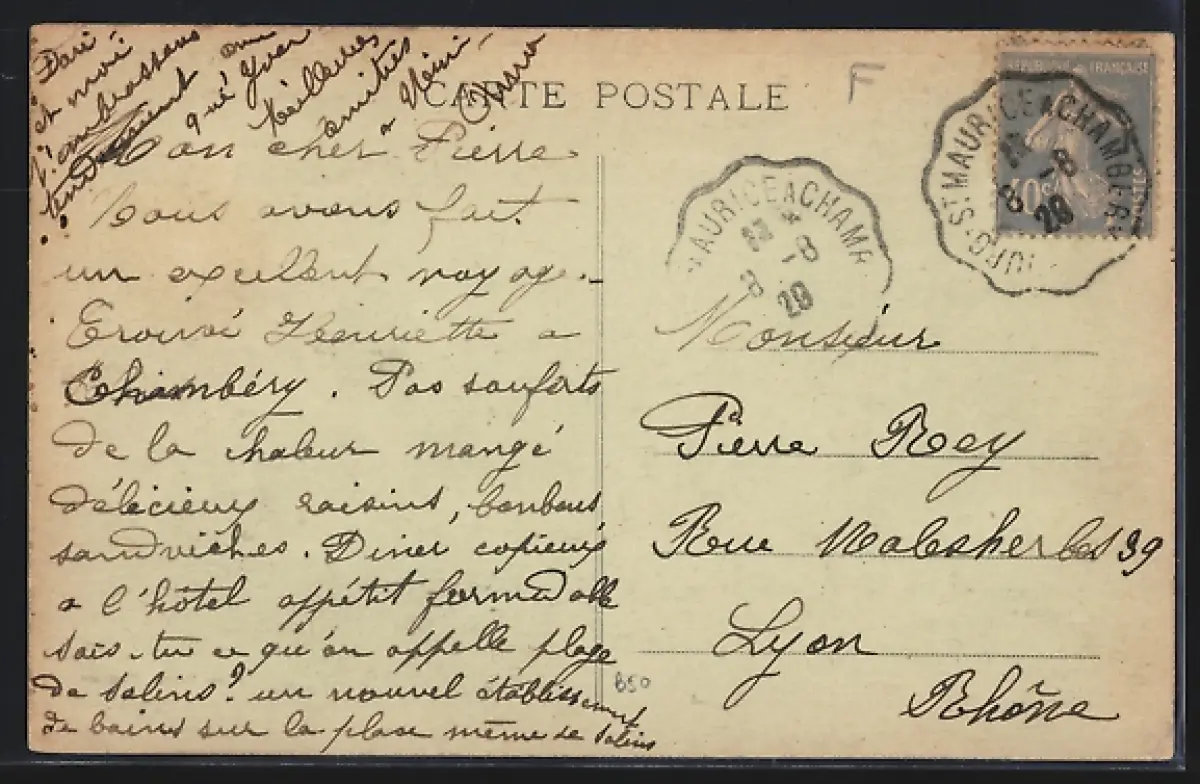 Dari
et moi
t'embrassons
tendrement
que Yvon
meilleures
amitiés
a Mémé
CARTE POSTALE
F
REPUBLIQUE FRANÇAISE
40c
ST MAURICE A CHAMBERY
8 -8
20
MAURICE A CHAMB
8 -8
20
Mon cher Pierre
Nous avons fait
un excellent voyage.
Trouvé Henriette a
Chambéry. Pas souferts
de la chaleur mangé
délicieux raisins, bonbons
sandviches. Diner copieux
a l'hôtel appétit formidable
sais-tu ce qu'on appelle plage
de Salins? un nouvel établissement
de bains sur la place même de Salins
Monsieur
Pierre Rey
Rue Malesherbes 39
Lyon
Rhône
850